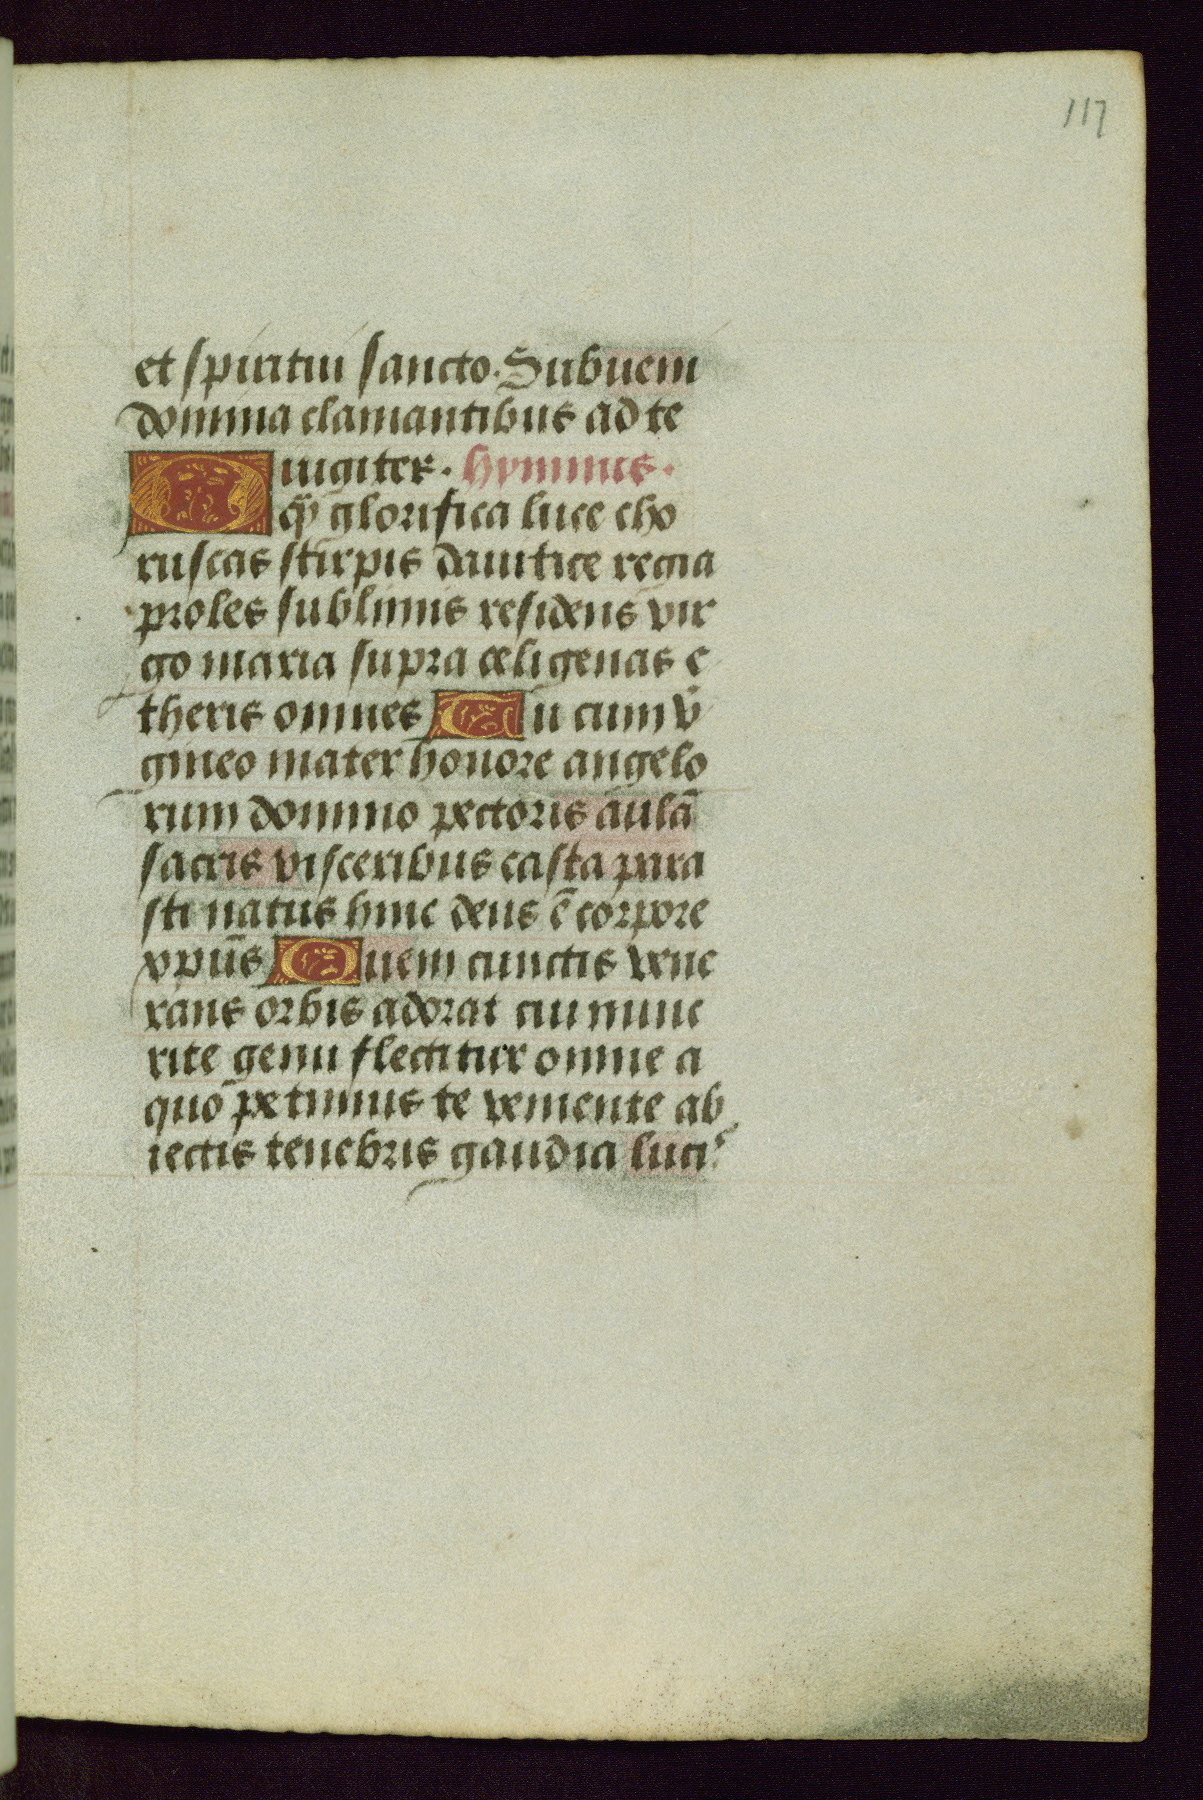 117
et spiritui sancto. Subueni
domina clamantibus ad te
iugiter. hymnus.
O q̄ glorifica luce cho
ruscas stirpis dauitice regia
proles sublimis residens vir
go maria supra celigenas e
theris omnes Tu cum v̄
gineo mater honore angelo
rum domino pectoris aulā
sacris visceribus casta para
sti natus hinc deus ē corpore
xpūs Quem cunctis vene
rans orbis adorat cui nunc
rite genu flectitur omne a
quo petimus te veniente ab
iectis tenebris gaudia lucis